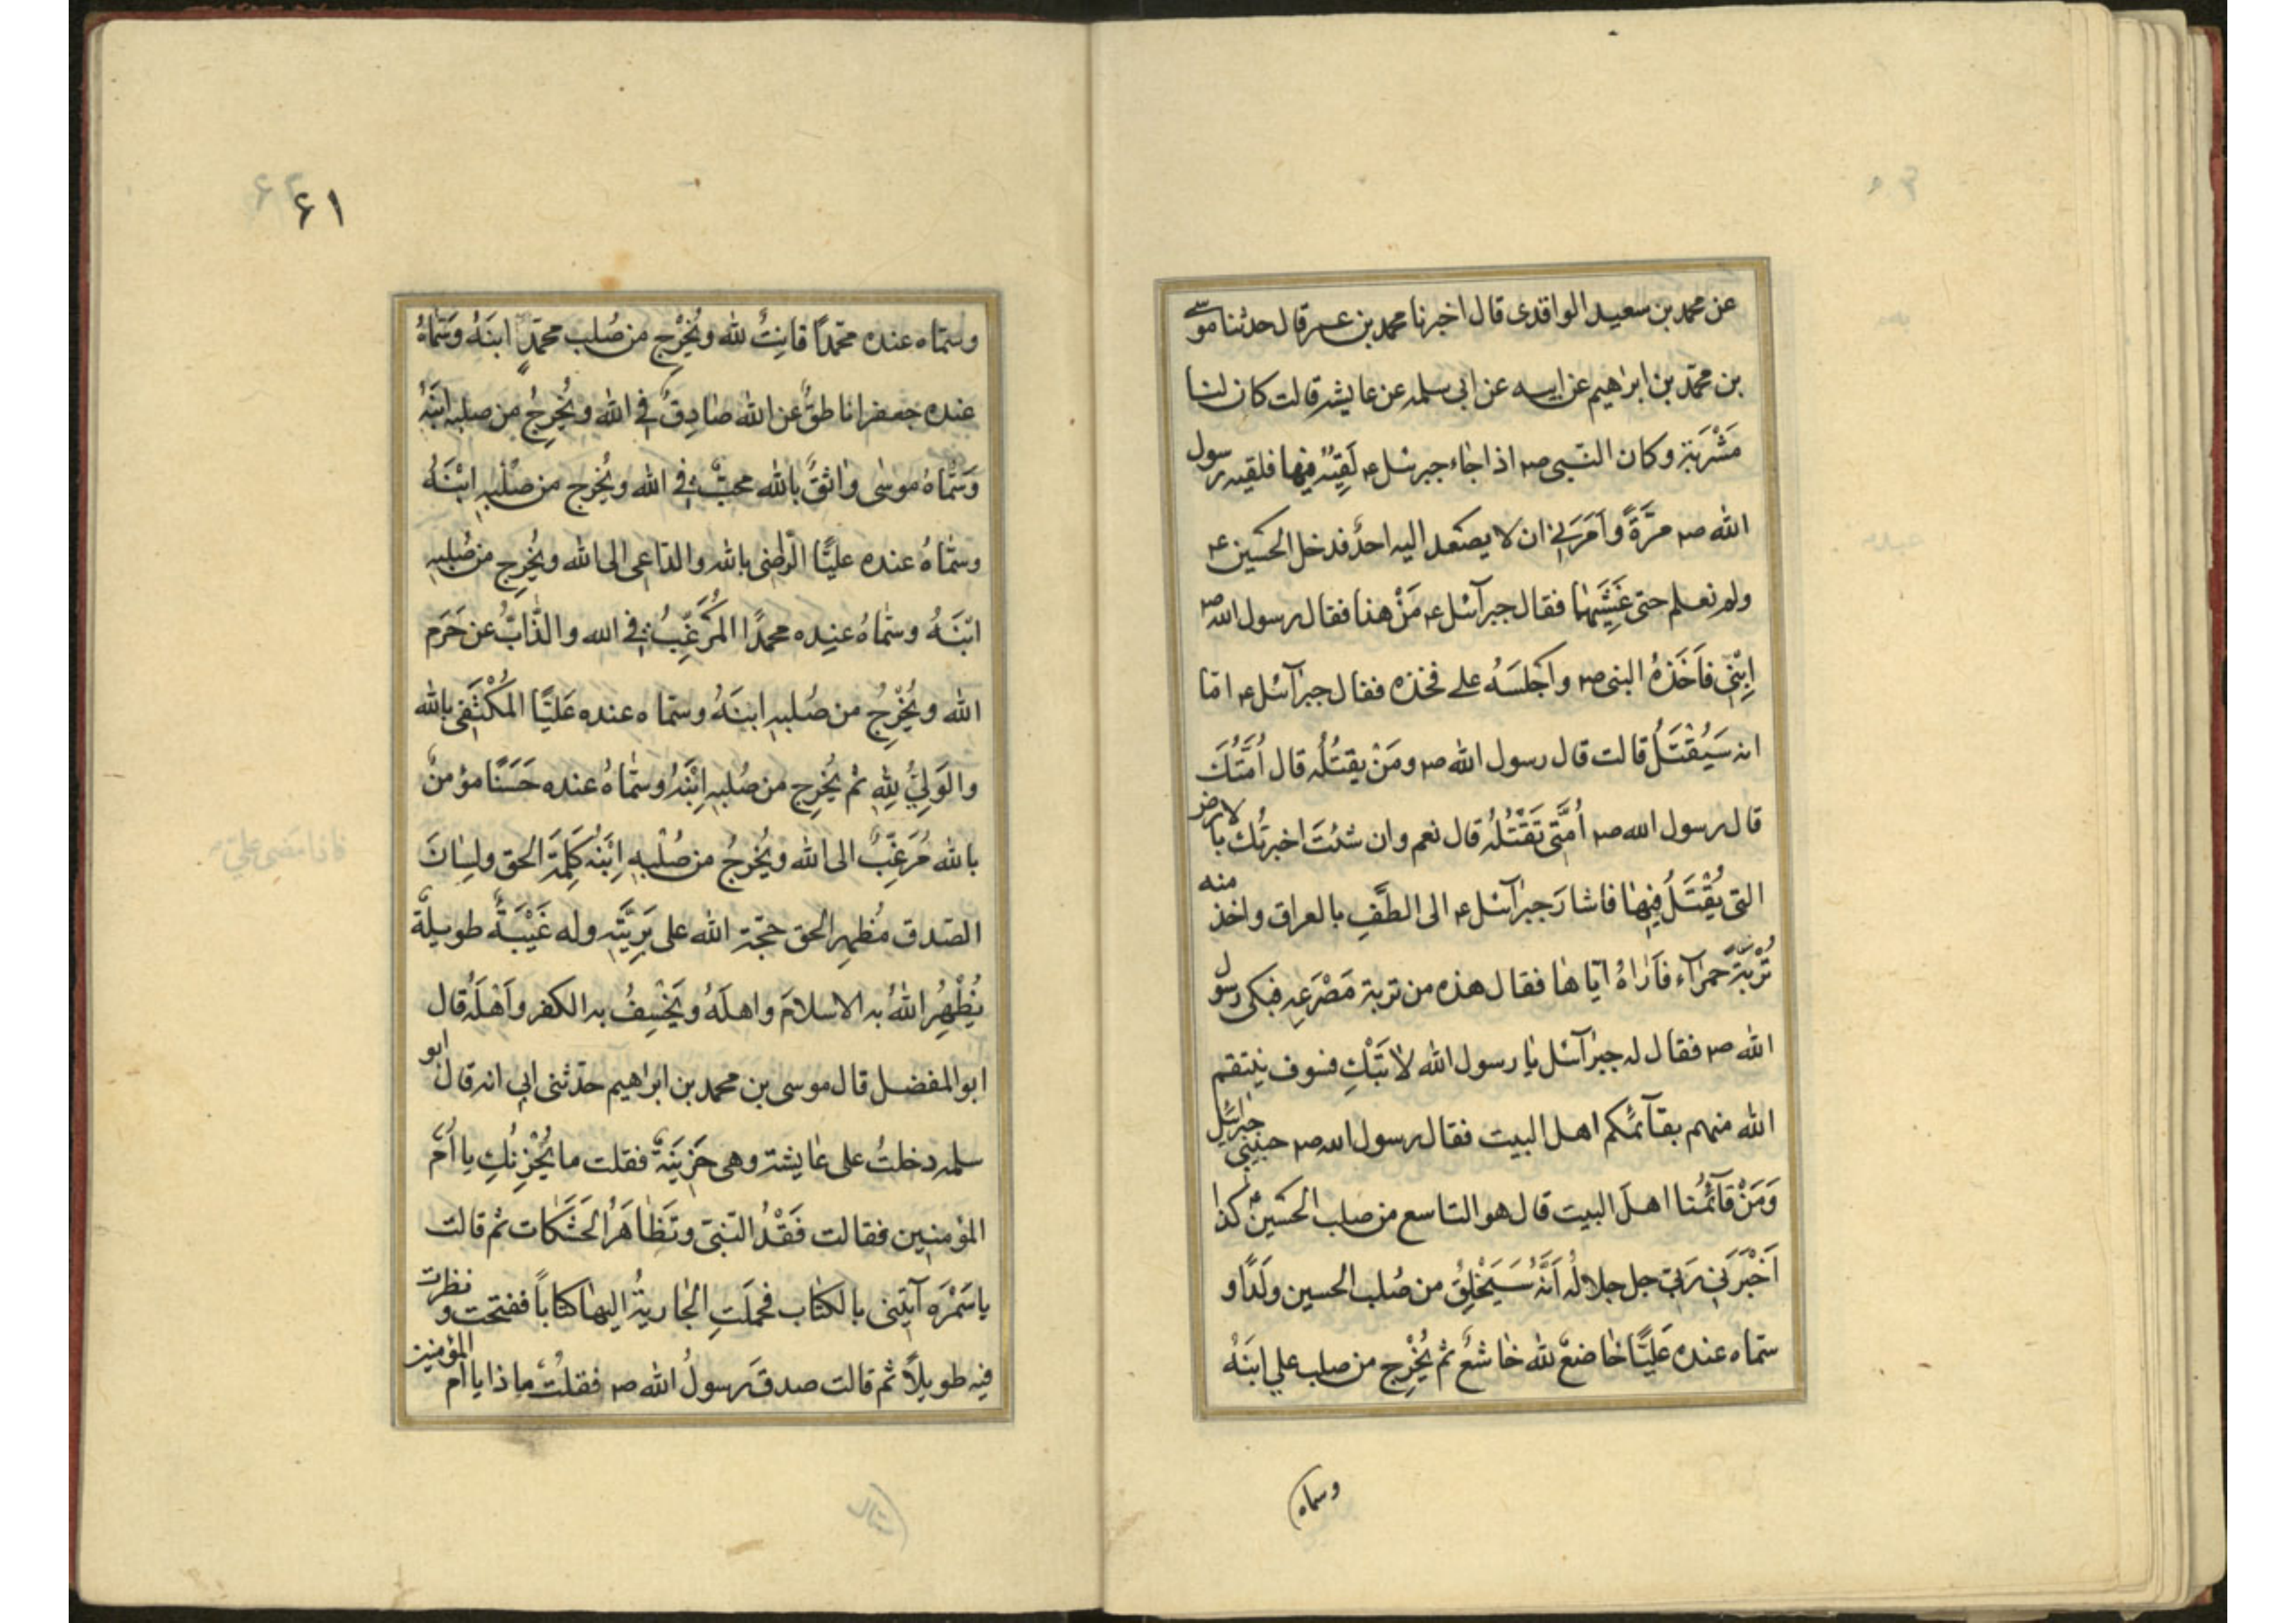 عن محمد بن سعيد الواقدى قال اخبرنا محمد بن عمر قال حدثنا موسى
بن محمّد بن ابراهيم عن ابيه عن ابى سلمه عن عايشه قالت كان لنا
مَشْرَبَة وكان النّبى صم اذا جاء جبرئيل ع لَقِيَهُ فيها فلقيه رسول
الله صم مَرَّةً وَاَمَرَنِى ان لا يصْعد اليه احدٌ فدخل الحُسَين ع
ولم نعلم حتى غَشِيَهٰا فقال جبرآئيل ع مَنْ هذا فقال رسول الله صم
اِبْنِى فاَخَذَهُ النبى صم واَجْلَسَهُ على فخذه فقال جبرآئيل ع امّا
انه سَيُقْتَلُ قالت قال رسول الله صم ومَنْ يقتُلُه قال اُمَّتُكَ
قال رسول الله صم اُمَّتى تَقْتُلُهُ قال نعم وان شئتَ اخبرتُك بالارض
التى يُقْتَلُ فِيهٰا فاشارَ جبرآئيل ع الى الطَّفِ بالعراق واخذ منه
تُرْبَةً حمرآء فاَرٰاهُ ايّاها فقال هذه من تربة مَصْرَعِه فبكى رسول
الله صم فقال له جبرآئيل يٰا رسول الله لاتَبْكِ فسوف ينتقم
الله منهم بقآئمكم اهل البيت فقال رسول الله صم حبيبى جبرائيل
وَمَنْ قآئمُنا اهلَ البيت قال هو التاسع من صلب الحُسَين ع كذا
اَخْبَرَنِى رَبّى جل جلالُه اَنَّهُ سَيَخْلِقُ من صُلب الحسين ولَدًا و
سمّاه عنده عَليًّا خٰاضعٌ لله خاشعٌ ثم يُخْرِج من صلب علي ابنَهُ
وسماه
٦١
وسمّاه عنده محمّدًا قانِتٌ لله ويُخْرِج من صُلب محمّدٍ ابنَهُ وسَمّاهُ
عنده جعفرا ناطقٌ عن الله صٰادِقٌ فى الله ويُخْرِجُ من صلبه ابنَهُ
وَسَمّاهُ موسٰى واثقٌ بالله محبٌّ فى الله ويُخْرِج من صُلْبِهِ ابْنَهُ
وسمّاهُ عنده عليًّا الرّاضى بالله والدّاعى الى الله ويُخْرِج من صُلبِهِ
ابْنَهُ وسمّاهُ عنِده محمدًا المُرَغِّبُ فى الله والذّابُّ عن حَرَم
الله ويُخْرِجُ من صُلبِهِ ابنَهُ وسمّاه عنده عَليًّا المُكْتَفى بالله
والوَلِىُّ لِلّهِ ثم يُخرِج من صُلبِهِ اِبْنَهُ وسمّاهُ عنده حَسَنًا مؤمنٌ
بالله مُرَغِّبٌ الى الله ويُخْرِجُ من صُلْبِهِ اِبْنَهُ كَلِمَةَ الحق ولِسٰانَ
الصّدق مُظهِر الحق حجّة الله على بَرِيَّتِه وله غَيْبَةٌ طويلةٌ
يُظْهِرُ اللهُ به الاسلامَ واهلَهُ ويَخْسِفُ به الكفر واَهْلَهُ قال
ابو المفضل قال موسى بن محمد بن ابراهيم حدّثنى ابى انه قال ابو
سلمه دخلتُ على عٰايشة وهى حَزِينَةٌ فقلت ما يُحْزِنُكِ يا اُمّ
المؤمنين فقالت فَقْدُ النّبى وتَظٰاهَرُ الحَسَكات ثم قالت
يا سَمُرَه آيتينى بالكتاب فحملَتِ الجٰاريةُ اليهٰا كتاباً ففتحت ونظرت
فيه طويلاً ثم قالت صدقَ رسولُ الله صم فقلتُ ماذا يا ام المؤمنين